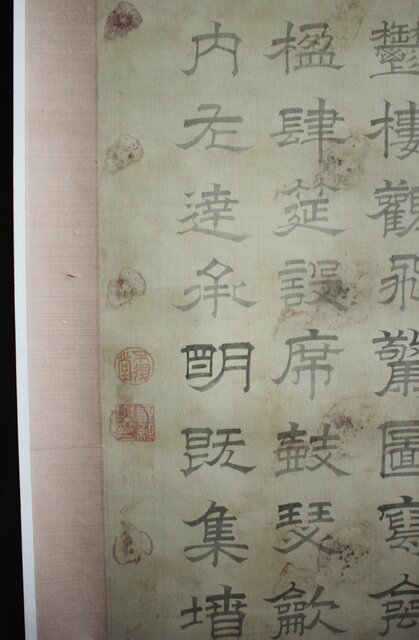 鬱樓觀飛驚圖寫禽
楹肆筵設席鼓瑟龡
內左達承明既集墳